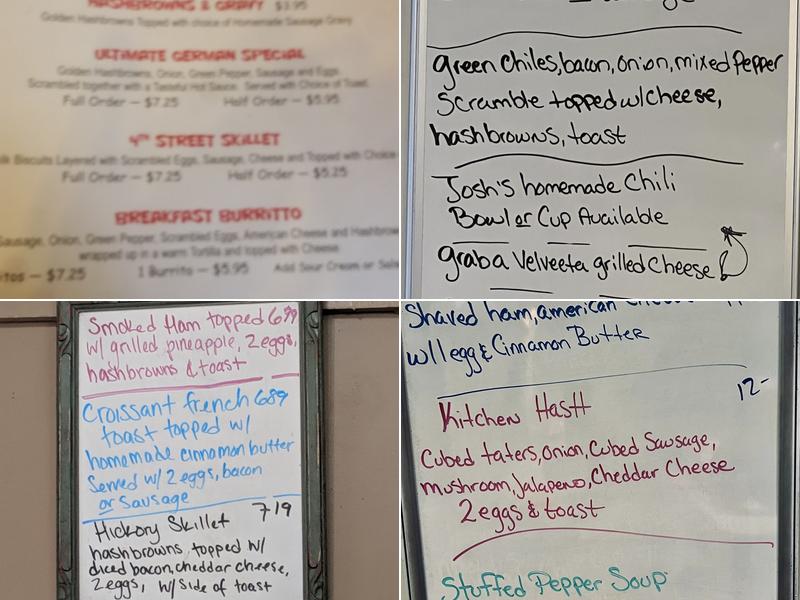 HASHBROWNS & GRAVY $3.95
Golden Hashbrowns Topped with choice of Homemade Sausage Gravy
ULTIMATE GERMAN SPECIAL
Golden Hashbrowns, Onion, Green Pepper, Sausage and Eggs
Scrambled together with a Tasteful Hot Sauce. Served with Choice of Toast.
Full Order — $7.25 Half Order — $5.95
4TH STREET SKILLET
Biscuits Layered with Scrambled Eggs, Sausage, Cheese and Topped with Choice
Full Order — $7.25 Half Order — $5.25
BREAKFAST BURRITO
Sausage, Onion, Green Pepper, Scrambled Eggs, American Cheese and Hashbrow
wrapped up in a warm Tortilla and topped with Cheese
itos — $7.25 1 Burrito — $5.95 Add Sour Cream or Sals
green chiles, bacon, onion, mixed Pepper
Scramble topped w/ cheese,
hashbrowns, toast
Josh's homemade Chili
Bowl or Cup Available
grab a Velveeta grilled cheese
Smoked Ham topped 6 99
w/ grilled pineapple, 2 eggs,
hashbrowns & toast
Croissant french 6 89
toast topped w/
homemade cinnamon butter
Served w/ 2 eggs, bacon
or sausage
Hickory Skillet 7 19
hashbrowns, topped w/
diced bacon, cheddar cheese,
2 eggs, w/ side of toast
Shaved ham, american
w/ 1 egg & Cinnamon Butter
12-
Kitchen Hash
Cubed taters, Onion, Cubed Sausage,
mushroom, Jalapeno, Cheddar Cheese
2 eggs & toast
Stuffed Pepper Soup